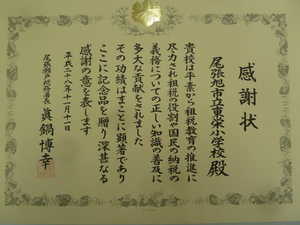 感謝状
尾張旭市立東栄小学校殿
貴校は平素から租税教育の推進に
尽力され租税の役割や国民の納税の
義務についての正しい知識の普及に
多大な貢献をされました
その功績はまことに顕著であり
ここに記念品を贈り深甚なる
感謝の意を表します
平成二十八年十一月十一日
尾張瀬戸税務署長 眞鍋博幸